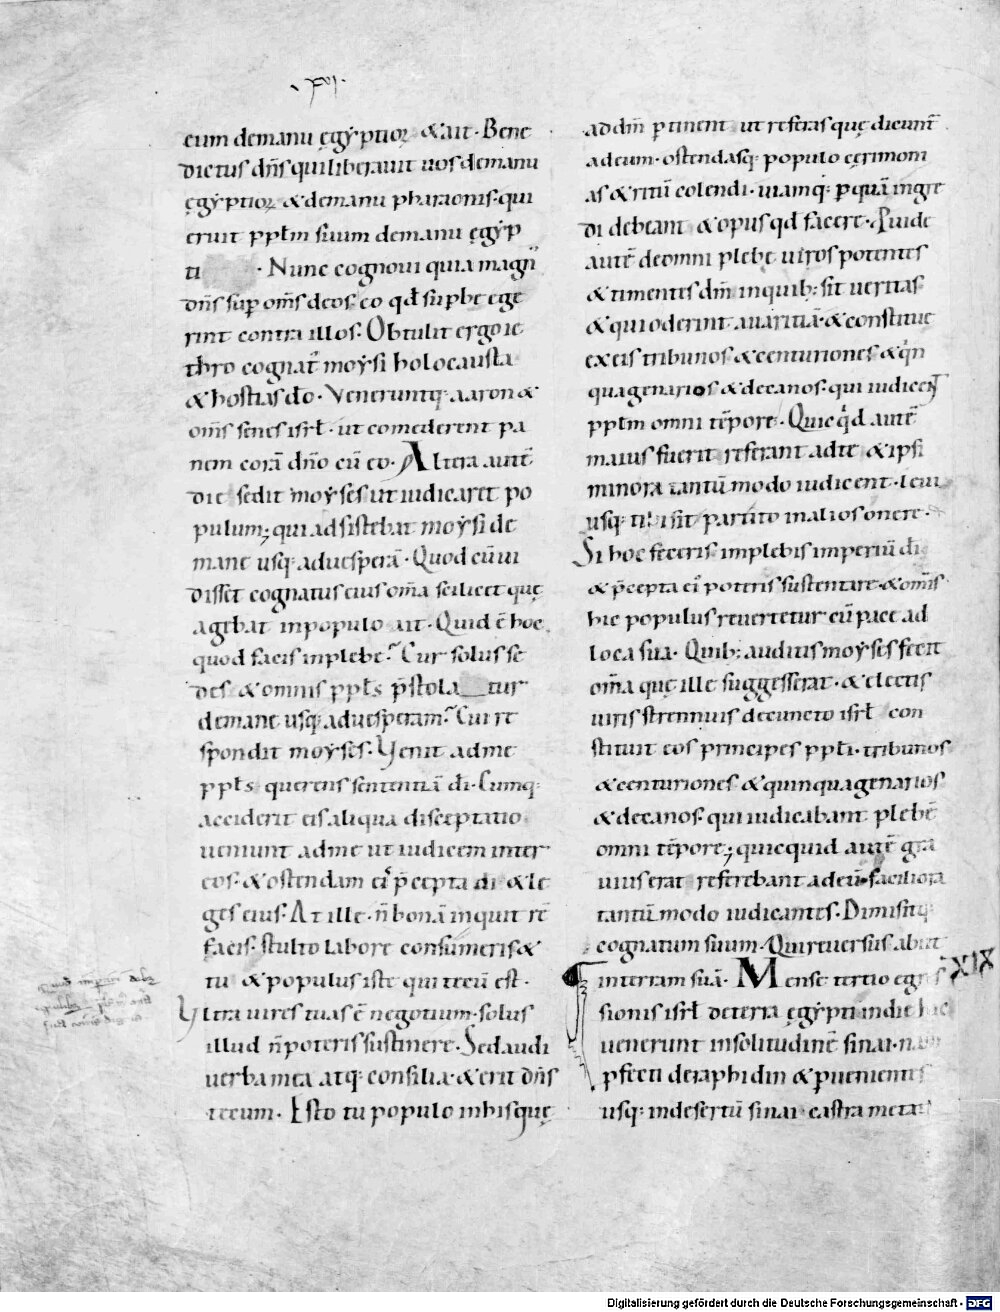 .xvi.
eum demanu ęgẏptioꝝ & ait · Bene
dictus dn̄s quiliberauit uosdemanu
ęgẏptioꝝ &demanu pharaonis· qui
eruit ppłm suum demanu ęgẏp
ti · Nunc cognoui quia magn᷒
dn̄s sup om̄s deos· eo qđ supbe ege
rint contra illos· Obtulit ergo ie
thro cognat᷒ moẏsi holocausta
& hostias dō · Veneruntq; aaron &
om̄s senes isrł · ut comederent pa
nem corā dn̄o cū eo · Altera autē
die sedit moẏses ut iudicaret po
pulum; qui adsistebat moẏsi de
mane usq; aduesperā · Quod cū ui
disset cognatus eius om̄a scilicet quę
agebat inpopulo ait · Quid ē hoc
quod facis inplebe? Cur solus se
des & omnis ppłs p̄stola_tur
demane usq; aduesperam? Cui re
spondit moẏses · Venit adme
ppłs querens sententiā dī · Cumq;
acciderit eis aliqua disceptatio
ueniunt adme ut iudicem inter
eos · & ostendam eis p̄cepta dī & le
ges eius · At ille · n̄ bonā inquit rē
facis · stulto labore consumeris &
tu & populus iste qui tecū est ·
Vltra uires tuas ē negotium · solus
illud n̄ poteris sustinere · Sed audi
uerba mea atq; consilia · & erit dn̄s
tecum · Esto tu populo inhis quę
addm̄ ptinent ut referas quę dicunt᷒
adeum · ostendasq; populo cerimoni
as & ritū colendi · uiamq; p quā ingre
di debeant & opus qđ facere · Puide
autē deomni plebę uiros potentes
& timentes dm̄ inquib; sit ueritas
& qui oderint auaritiā · & constitue
exeis tribunos & centuriones & qn̄
quagenarios & decanos · qui iudicent
ppłm omni tēpore · Quicqd autē
maius fuerit referant adte & ipsi
minora tantū modo iudicent · leui
usq; tibi sit partito inalios onere ·
Si hoc feceris implebis imperiū dī
& p̄cepta ei᷒ poteris sustentare · & om̄is
hic populus reuertetur cū pace ad
loca sua · Quib; auditis moẏses fecit
om̄a quę ille suggesserat · & electis
uiris strennuis decuncto isrł con
stituit eos principes ppłi · tribunos
& centuriones & quinquagenarios
& decanos · qui iudicabant plebē
omni tēpore; quicquid autē gra
uius erat referebant adeū · faciliora
tantū modo iudicantes · Dimisitq;
cognatum suum · Qui reuersus abiit
interram suā · Mense tertio egres XIX
sionis isrł deterra ęgẏpti indie hac
uenerunt insolitudinē sinai · nam
pfecti deraphidin & puenientes
usq; indesertū sinai · castra metati
Digitalisierung gefördert durch die Deutsche Forschungsgemeinschaft - DFG